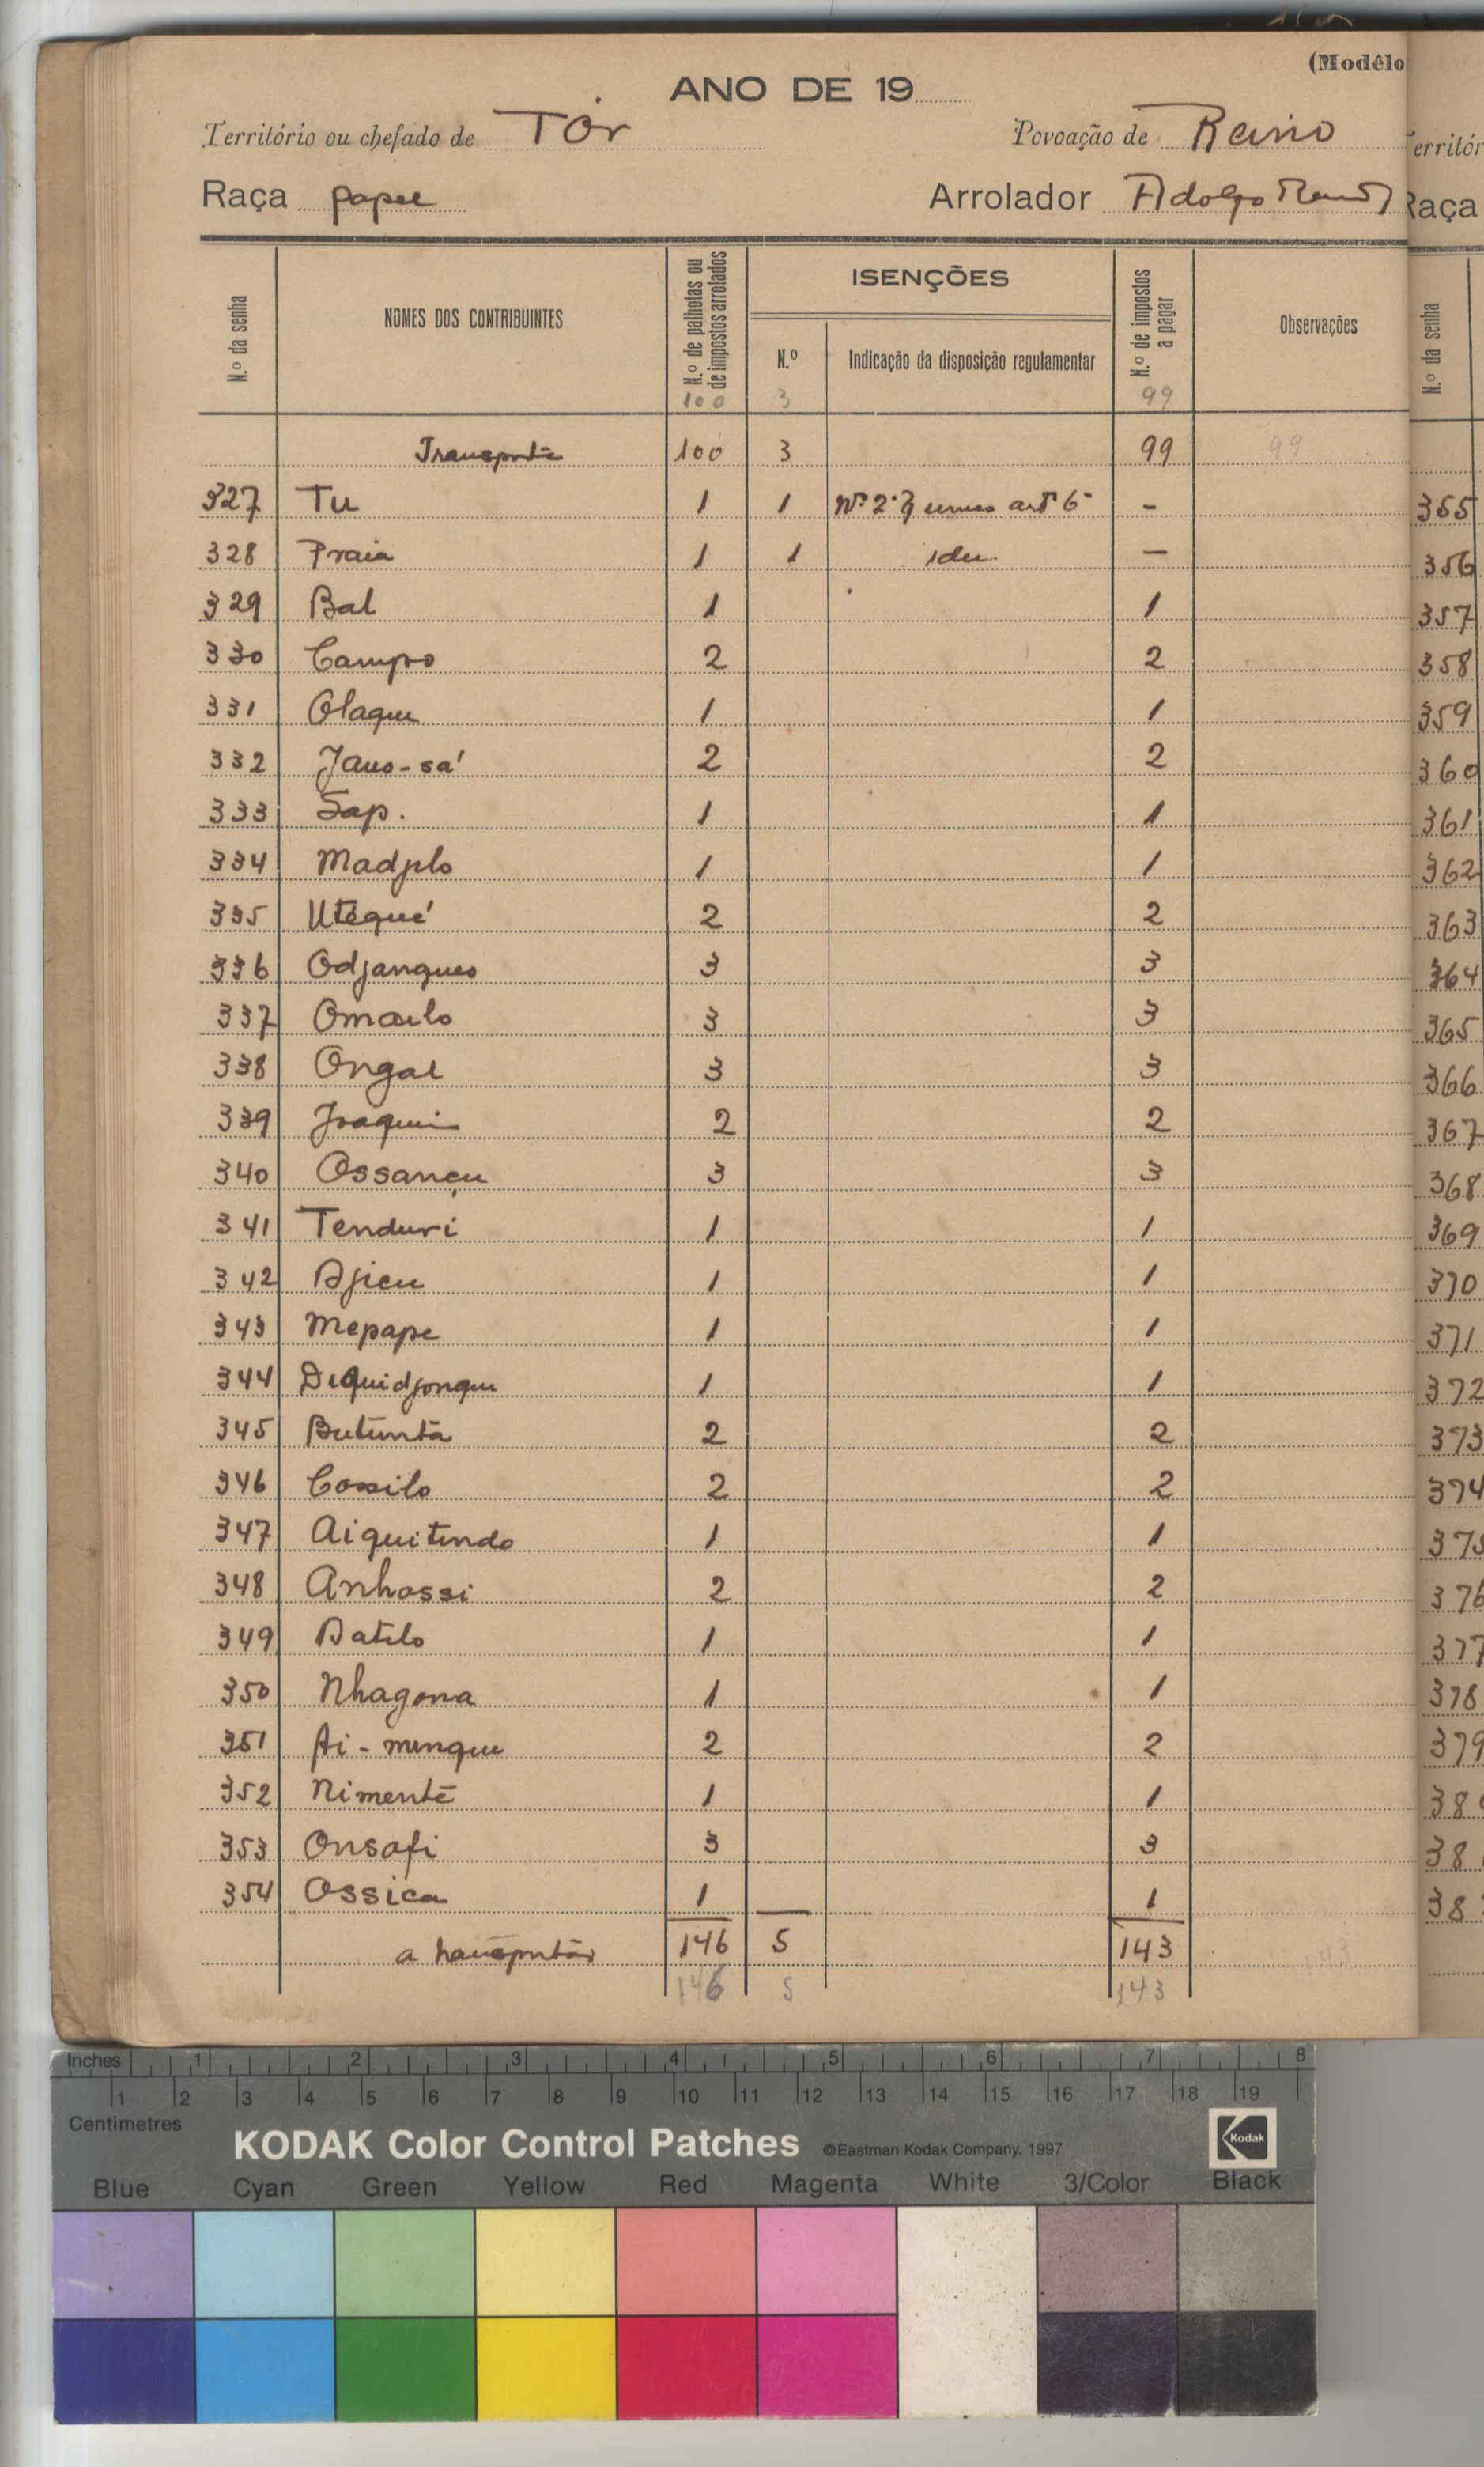 (Modêlo
ANO DE 19
Território ou chefado de Tór Povoação de Reino
Raça papel Arrolador Adolfo
N.º da senha NOMES DOS CONTRIBUINTES N.º de palhotas ou de impostos arrolados ISENÇÕES N.º Indicação da disposição regulamentar N.º de impostos a pagar Observações
100 3 99
Transporte 100 3 99 99
327 Tu 1 1 Nº 2º art 6º -
328 Praia 1 1 idem -
329 Bal 1 1
330 Campo 2 2
331 Olaqui 1 1
332 Jaus-sá 2 2
333 Sap. 1 1
334 Madjilo 1 1
335 Utéqué 2 2
336 Odjanques 3 3
337 Omailo 3 3
338 Ongal 3 3
339 Joaquim 2 2
340 Ossançu 3 3
341 Tenduri 1 1
342 Ajicu 1 1
343 Mepape 1 1
344 Diquidjonqui 1 1
345 Butunta 2 2
346 Cossilo 2 2
347 Aiquitindo 1 1
348 Anhossi 2 2
349 Batilo 1 1
350 Nhagona 1 1
351 Ai-minque 2 2
352 Nimenté 1 1
353 Onsafi 3 3
354 Ossica 1 1
a transportar 146 5 143 143
146 5 143
erritór
Raça
N.º da senha
355
356
357
358
359
360
361
362
363
364
365
366
367
368
369
370
371
372
373
374
375
376
377
378
379
38
38
38
Inches 1 2 3 4 5 6 7 8
1 2 3 4 5 6 7 8 9 10 11 12 13 14 15 16 17 18 19
Centimetres
KODAK Color Control Patches ©Eastman Kodak Company, 1997 Kodak
Blue Cyan Green Yellow Red Magenta White 3/Color Black